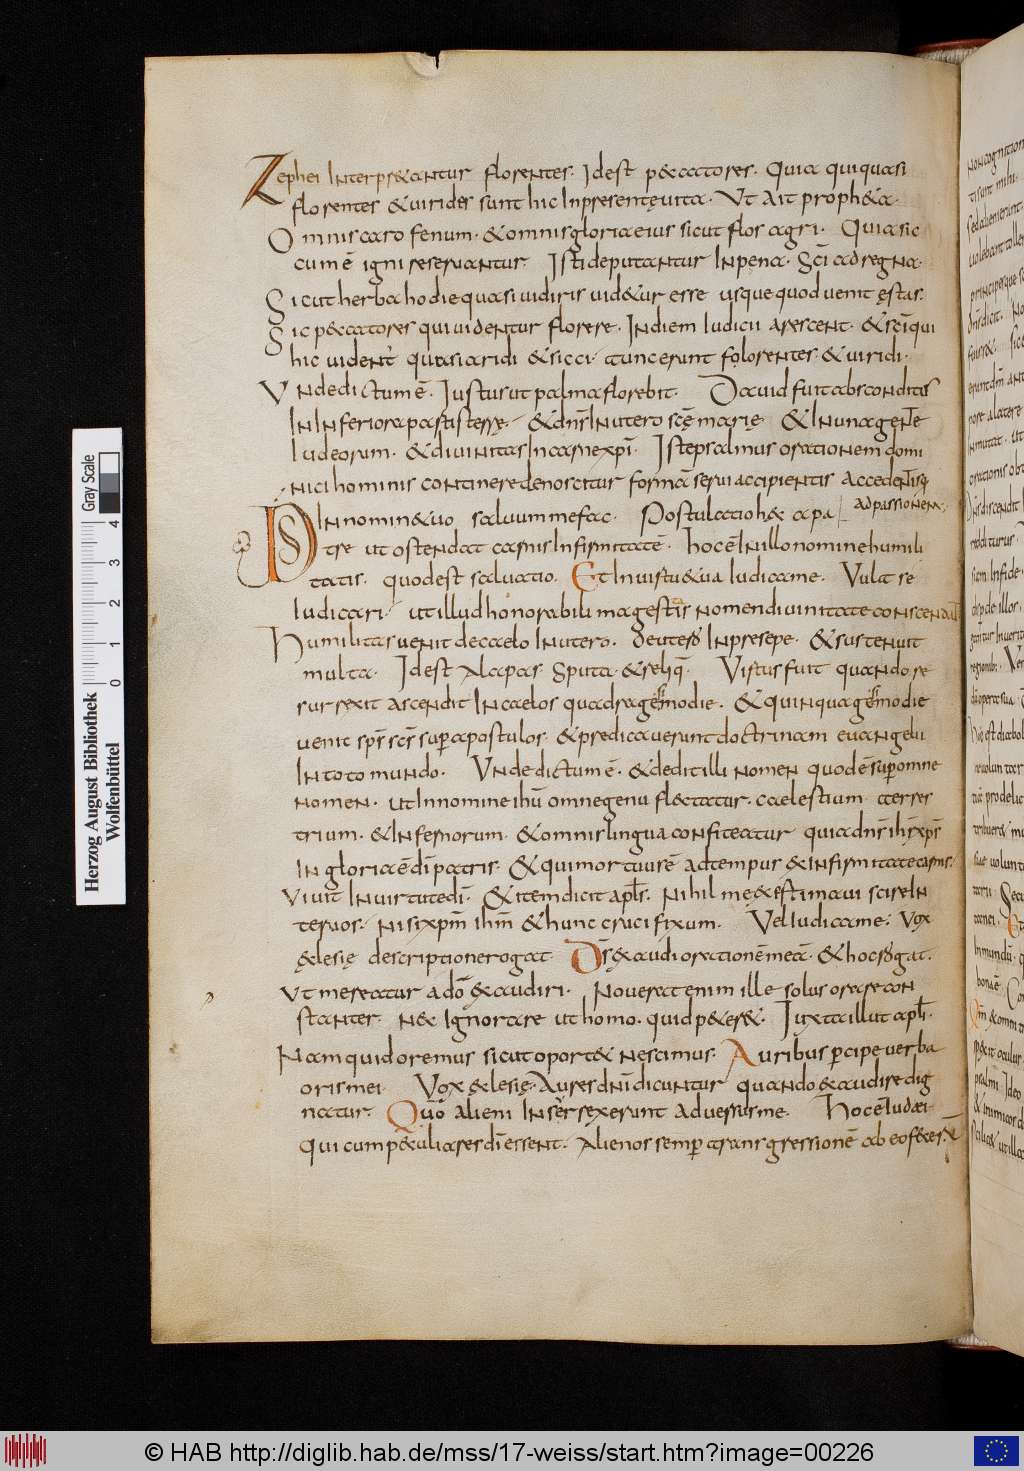 Zephei Interpr&antur florentes. Idest p&catores. Quia qui quasi
florentes &uirides sunt hic Inpresentęuita. Ut Ait proph&a.
Omniscaro fenum. &omnisgloriaeius sicut flos agri. Quia sic
cumē igni reseruantur. Istideputantur Inpena. Sci adregna.
Sicut herba hodie quasi uidiris uid&ur esse usque quod uenit ęstas.
Sic p&catores qui uidentur florere. Indiem Iudicii arescent. &sciqui
hic uident quasi aridi &sicci. tuncerunt folorentes &uiridi.
Undedictumē. Iustus ut palma florebit. Dauid fuit absconditus
InInferiorapartisterrę. &dns Inutero scę marię &Inunagente
Iudeorum. &diuinitas Incarnexpi. Istepsalmus orationem domi
nici hominis continere denoscitur formā serui accipientis Accedentisq
adpassionem.
DS Innomin&uo saluummefac. Postulatioh& apa
tre ut ostendat carnis Infirmitatē. hocē Inillonominehumili
tatis. quodest saluatio. EtInuirtu&ua Iudicame. Uult se
Iudicari. utillud honorabili magestatis nomendiuinitate conscendat
Humilitas uenit decaelo Inutero. deutero Inpresepe. &sustenuit
multa. Idest Alapas Sputa &reliq. Uirtus fuit quando re
surrexit ascendit Incaelos quadragesimodie. &quinquagesimodie
uenit sps scs superapostulos. &predicauerunt doctrinam euangelii
Intoto mundo. Undedictumē. &dedit illi nomen quodē superomne
nomen. utInnomineihu omnegenu flectatur. caelestium terres
trium. &Infernorum. &omnislingua confiteatur quiadns ihs xps
In gloriaē di patris. &quimortuusē adtempus &Infirmitatecarnis.
Uiuit Inuirtutedi. &itemdicit apls. Nihil me&estimaui scireIn
teruos. Nisi xpm ihm &hunc crucifixum. Uel Iudicame. Vox
ęclesię descriptione rogat. Ds ęxaudi orationē meā. &hocrogat.
Ut mereatur adō &audiri. Nouerat enim ille solus orare con
stanter. nec Ignorare ut homo. quid p&er&. Iuxta illut apli.
Nam quid oremus sicut oport& nescimus. Auribus percipe uerba
oris mei. Vox ęclesię. Aures dni dicuntur quando &audire dig
natur. Quō alieni Insurrexerunt aduersusme. Hocē Iudęi.
Qui cum p&uliares di essent. Alienos semper transgressionē ab eo fecer&
Herzog August Bibliothek
Wolfenbüttel
0 1 2 3 4
Gray Scale
© HAB http://diglib.hab.de/mss/17-weiss/start.htm?image=00226